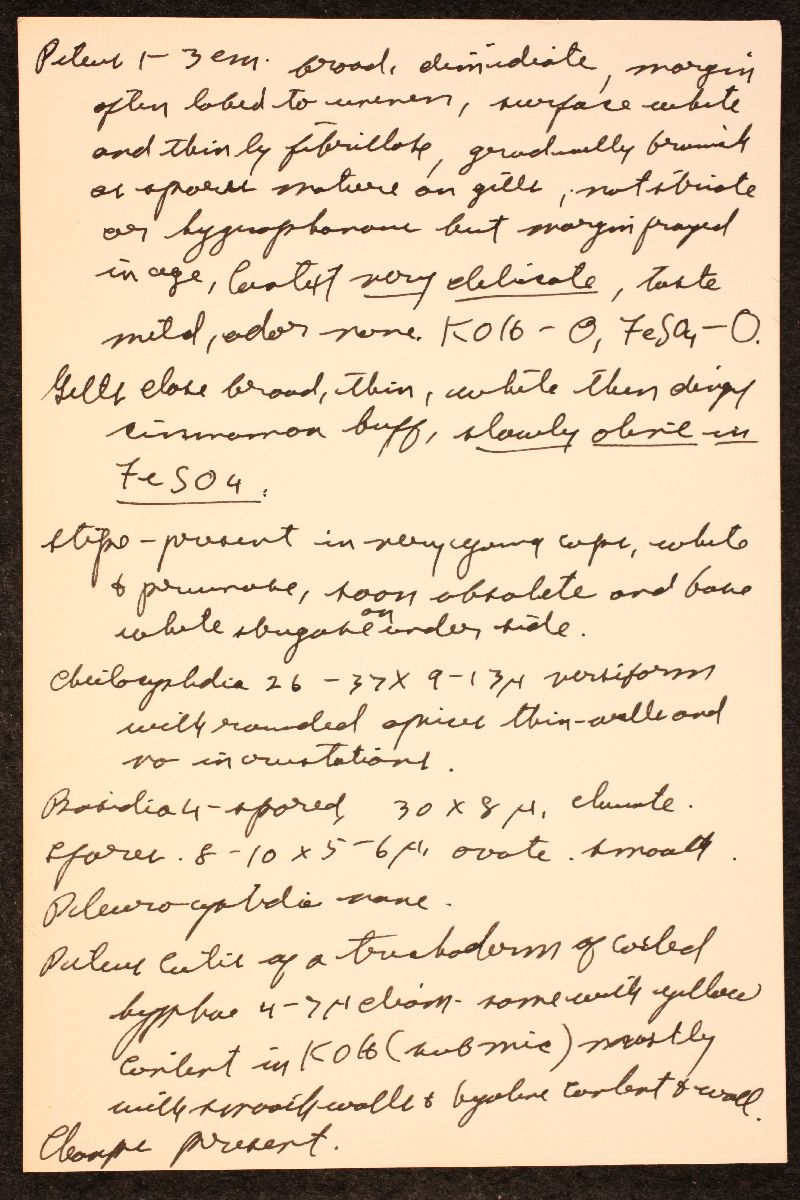 Pileus 1-3 cm. broad, dimidiate, margin
often lobed to uneven, surface white
and thinly fibrillose, gradually brownish
as spores mature on gills, not striate
or hygrophanous but margin frayed
in age, Context very delicate, taste
mild, odor none. KOH - O, FeSO4 - O.
Gills close broad, thin, white then dingy
cinnamon buff, slowly olive in
FeSO4.
Stipe - present in very young caps, white
& pruinose, soon obsolete and base
white strigose on under side.
Cheilocystidia 26 - 37 X 9-13 µ versiform
with rounded apices thin-walled and
no incrustations.
Basidia 4-spored, 30 x 8 µ, clavate.
Spores. 8-10 x 5-6 µ, ovate. smooth.
Pleurocystidia none.
Pileus cutis of a trichoderm of coiled
hyphae 4-7 µ diam. some with yellow
content in KOH (sub mic) mostly
with smooth walls & hyaline content & wall.
Clamps present.